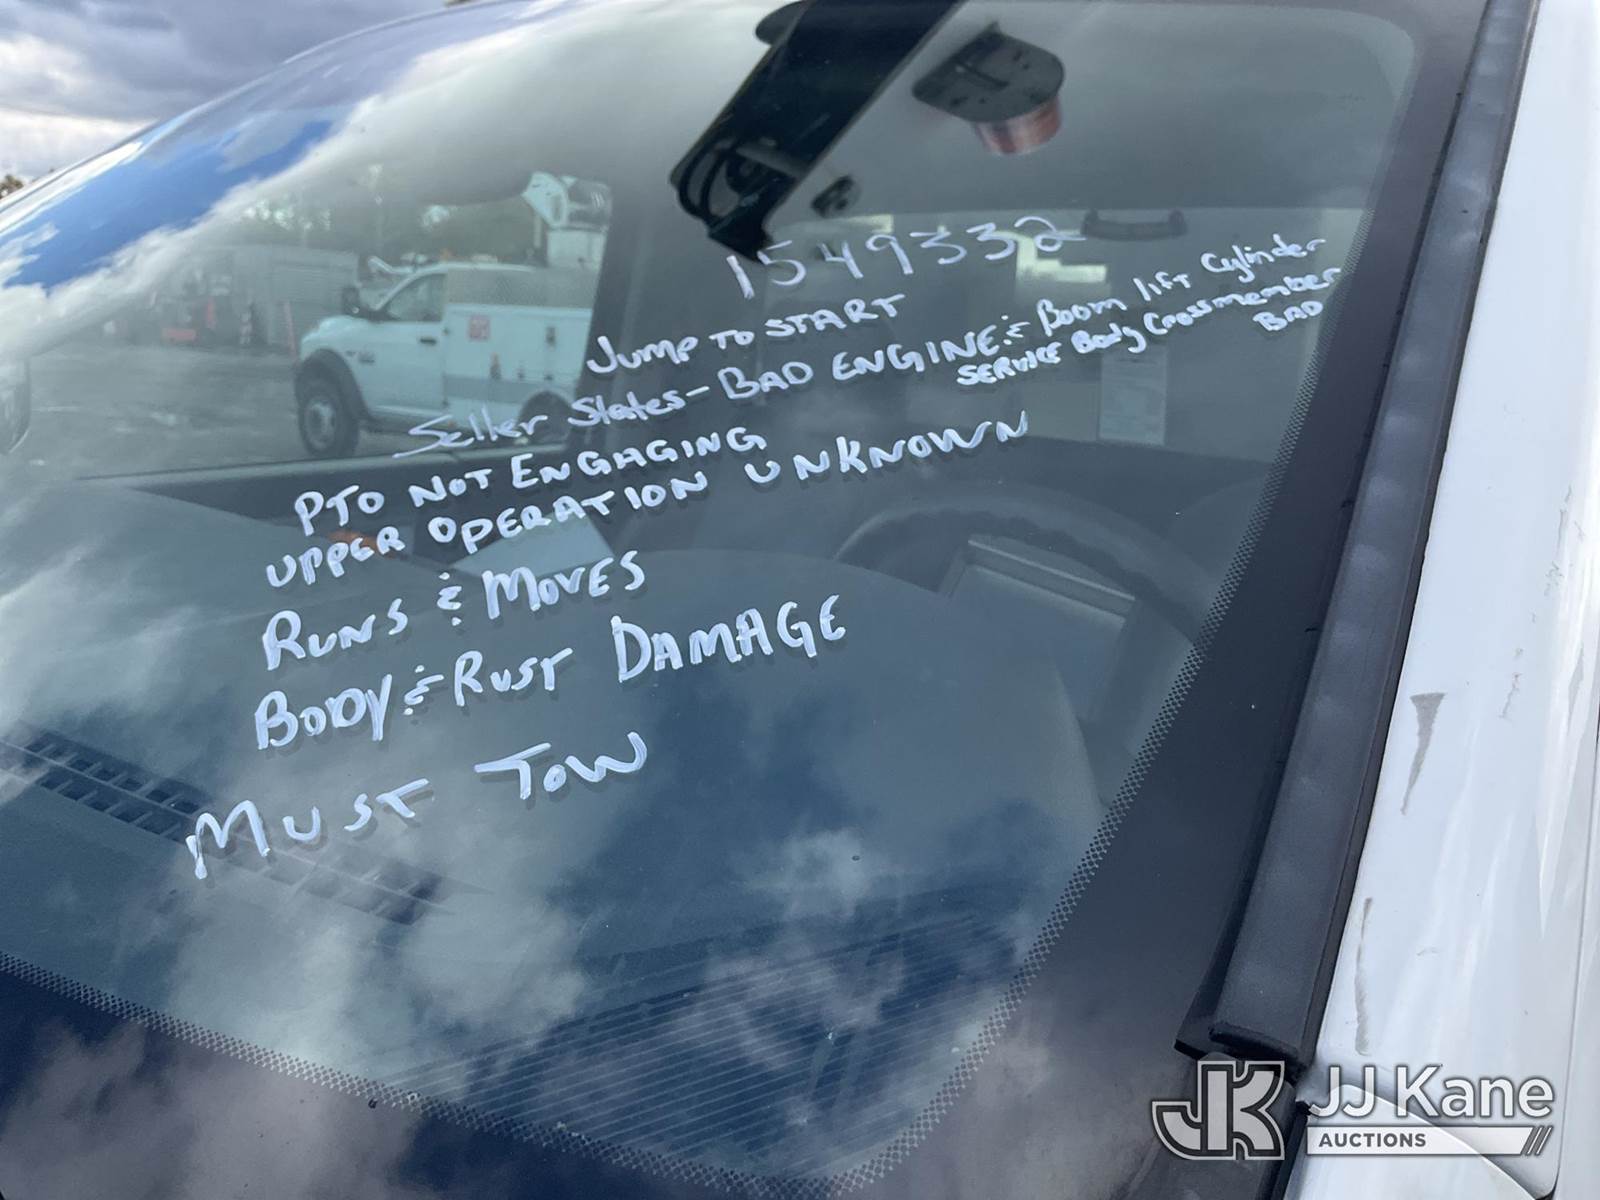 1549332
JUMP TO START
Seller States - BAD ENGINE & Boom lift Cylinder
SERVICE Body Crossmember
BAD
PTO NOT ENGAGING
UPPER OPERATION UNKNOWN
RUNS & MOVES
BODY & RUST DAMAGE
MUST TOW
JK JJ Kane
AUCTIONS